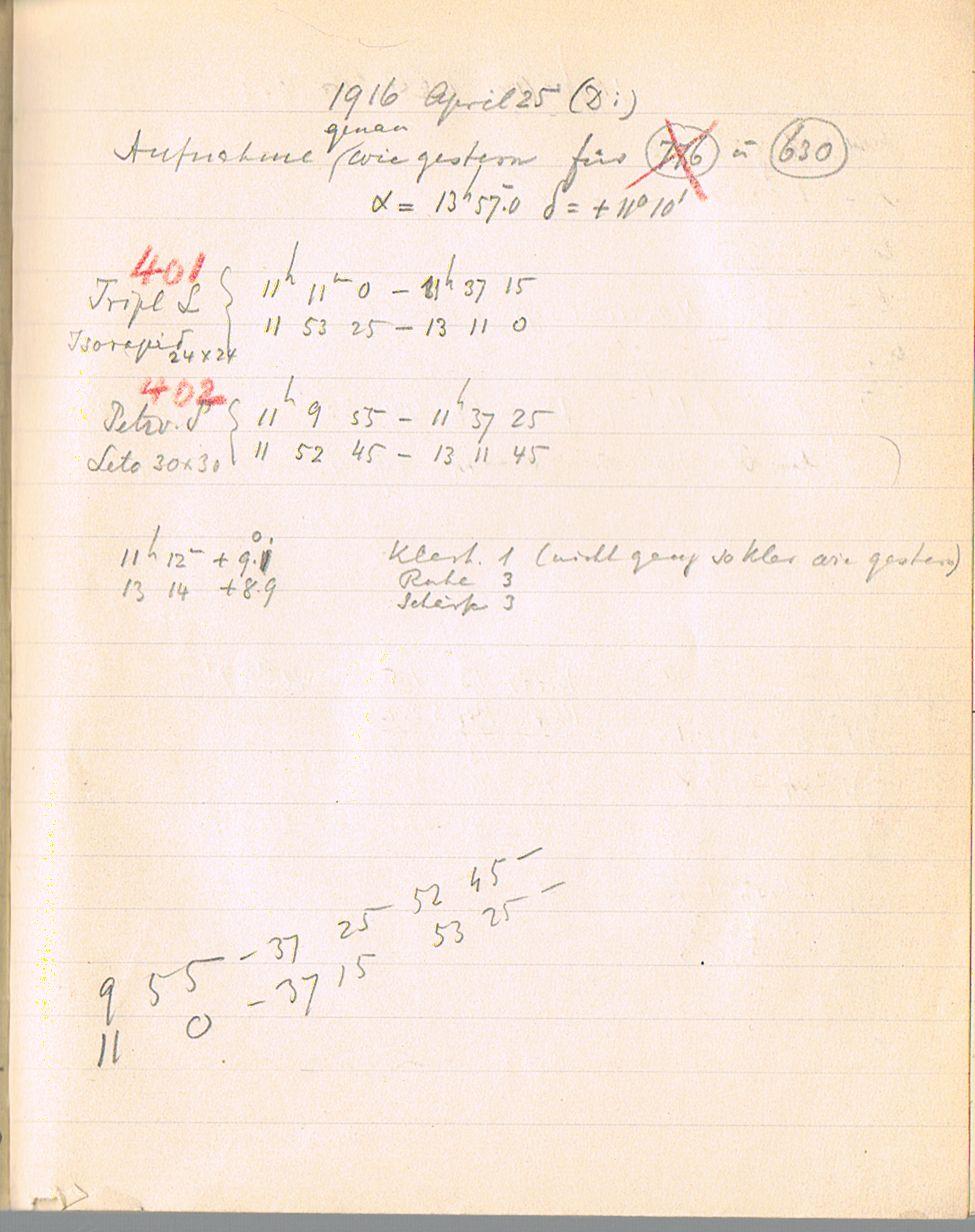 1916 April 25 (Di)
genau
Aufnahme (wie gestern für 776 u 630
α = 13h 57m.0 δ = +11° 10'
401
Tripl L 11h 11m 0 – 11h 37 15
11 53 25 – 13 11 0
Isorapid
24×24
402
Petzv. P 11h 9 55 – 11h 37 25
Leto 30×30 11 52 45 – 13 11 45
11h 12m +9°.1 Klarh. 1 (nicht ganz so klar wie gestern)
Ruhe 3
13 14 +8.9
Schärfe 3
9 55 – 37 25 52 45 –
11 0 – 37 15 53 25 –